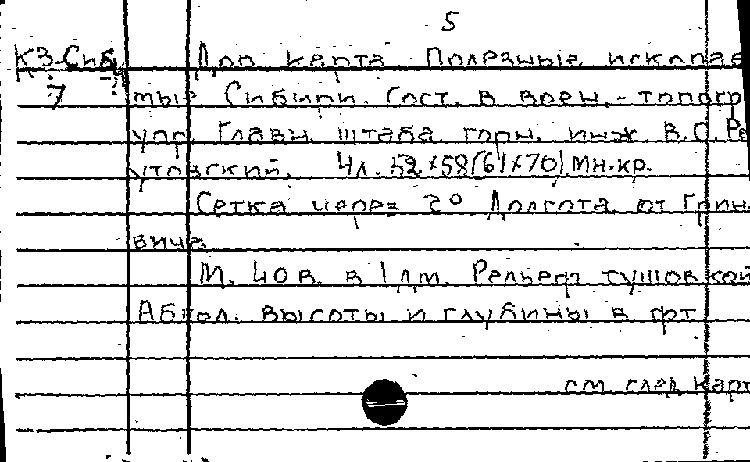 5
КЗ-Сиб Доп карта Полезные ископае
7 мые Сибири. Сост. в воен.-топогр
упр. Главн. штаба горн. инж В.С. Ре
утовский. 4л. 52×58(61×70) Мн.кр.
Сетка через 2° Долгота от Грин
вича
М. 40 в. в 1 дм. Рельеф тушовкой
Абсол. высоты и глубины в фт
см след карт